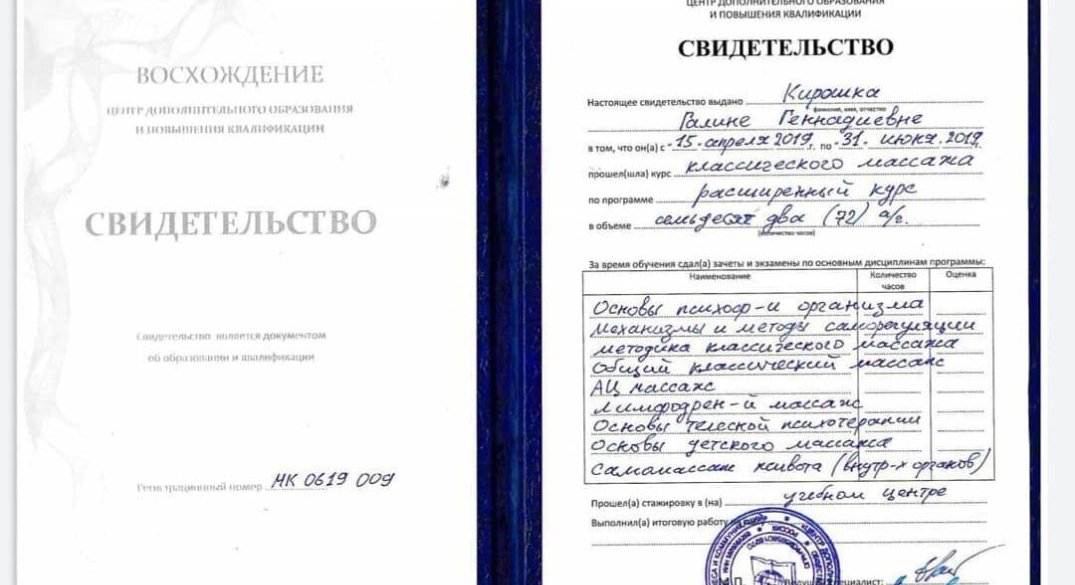 ВОСХОЖДЕНИЕ
ЦЕНТР ДОПОЛНИТЕЛЬНОГО ОБРАЗОВАНИЯ
И ПОВЫШЕНИЯ КВАЛИФИКАЦИИ
СВИДЕТЕЛЬСТВО
Свидетельство является документом
об образовании и квалификации
Регистрационный номер НК 0619 009
ЦЕНТР ДОПОЛНИТЕЛЬНОГО ОБРАЗОВАНИЯ
И ПОВЫШЕНИЯ КВАЛИФИКАЦИИ
СВИДЕТЕЛЬСТВО
Настоящее свидетельство выдано Кирошка
фамилия, имя, отчество
Галине Геннадиевне
в том, что он(а) с "15 апреля 2019 г. по "31 июня 2019
прошел(шла) курс классического массажа
по программе расширенный курс
в объеме семьдесят два (72) а/г.
(количество часов)
За время обучения сдал(а) зачеты и экзамены по основным дисциплинам программы:
Наименование Количество часов Оценка
Основы психоф-и организма
механизмы и методы саморегуляции
методика классического массажа
Общий классический массаж
АЦ массаж
Лимфодрен-й массаж
Основы телеской психотерапии
Основы детского массажа
Самомассаж живота (внутр-х органов)
Прошел(а) стажировку в (на) учебном центре
Выполнил(а) итоговую работу
М.П. специалист: